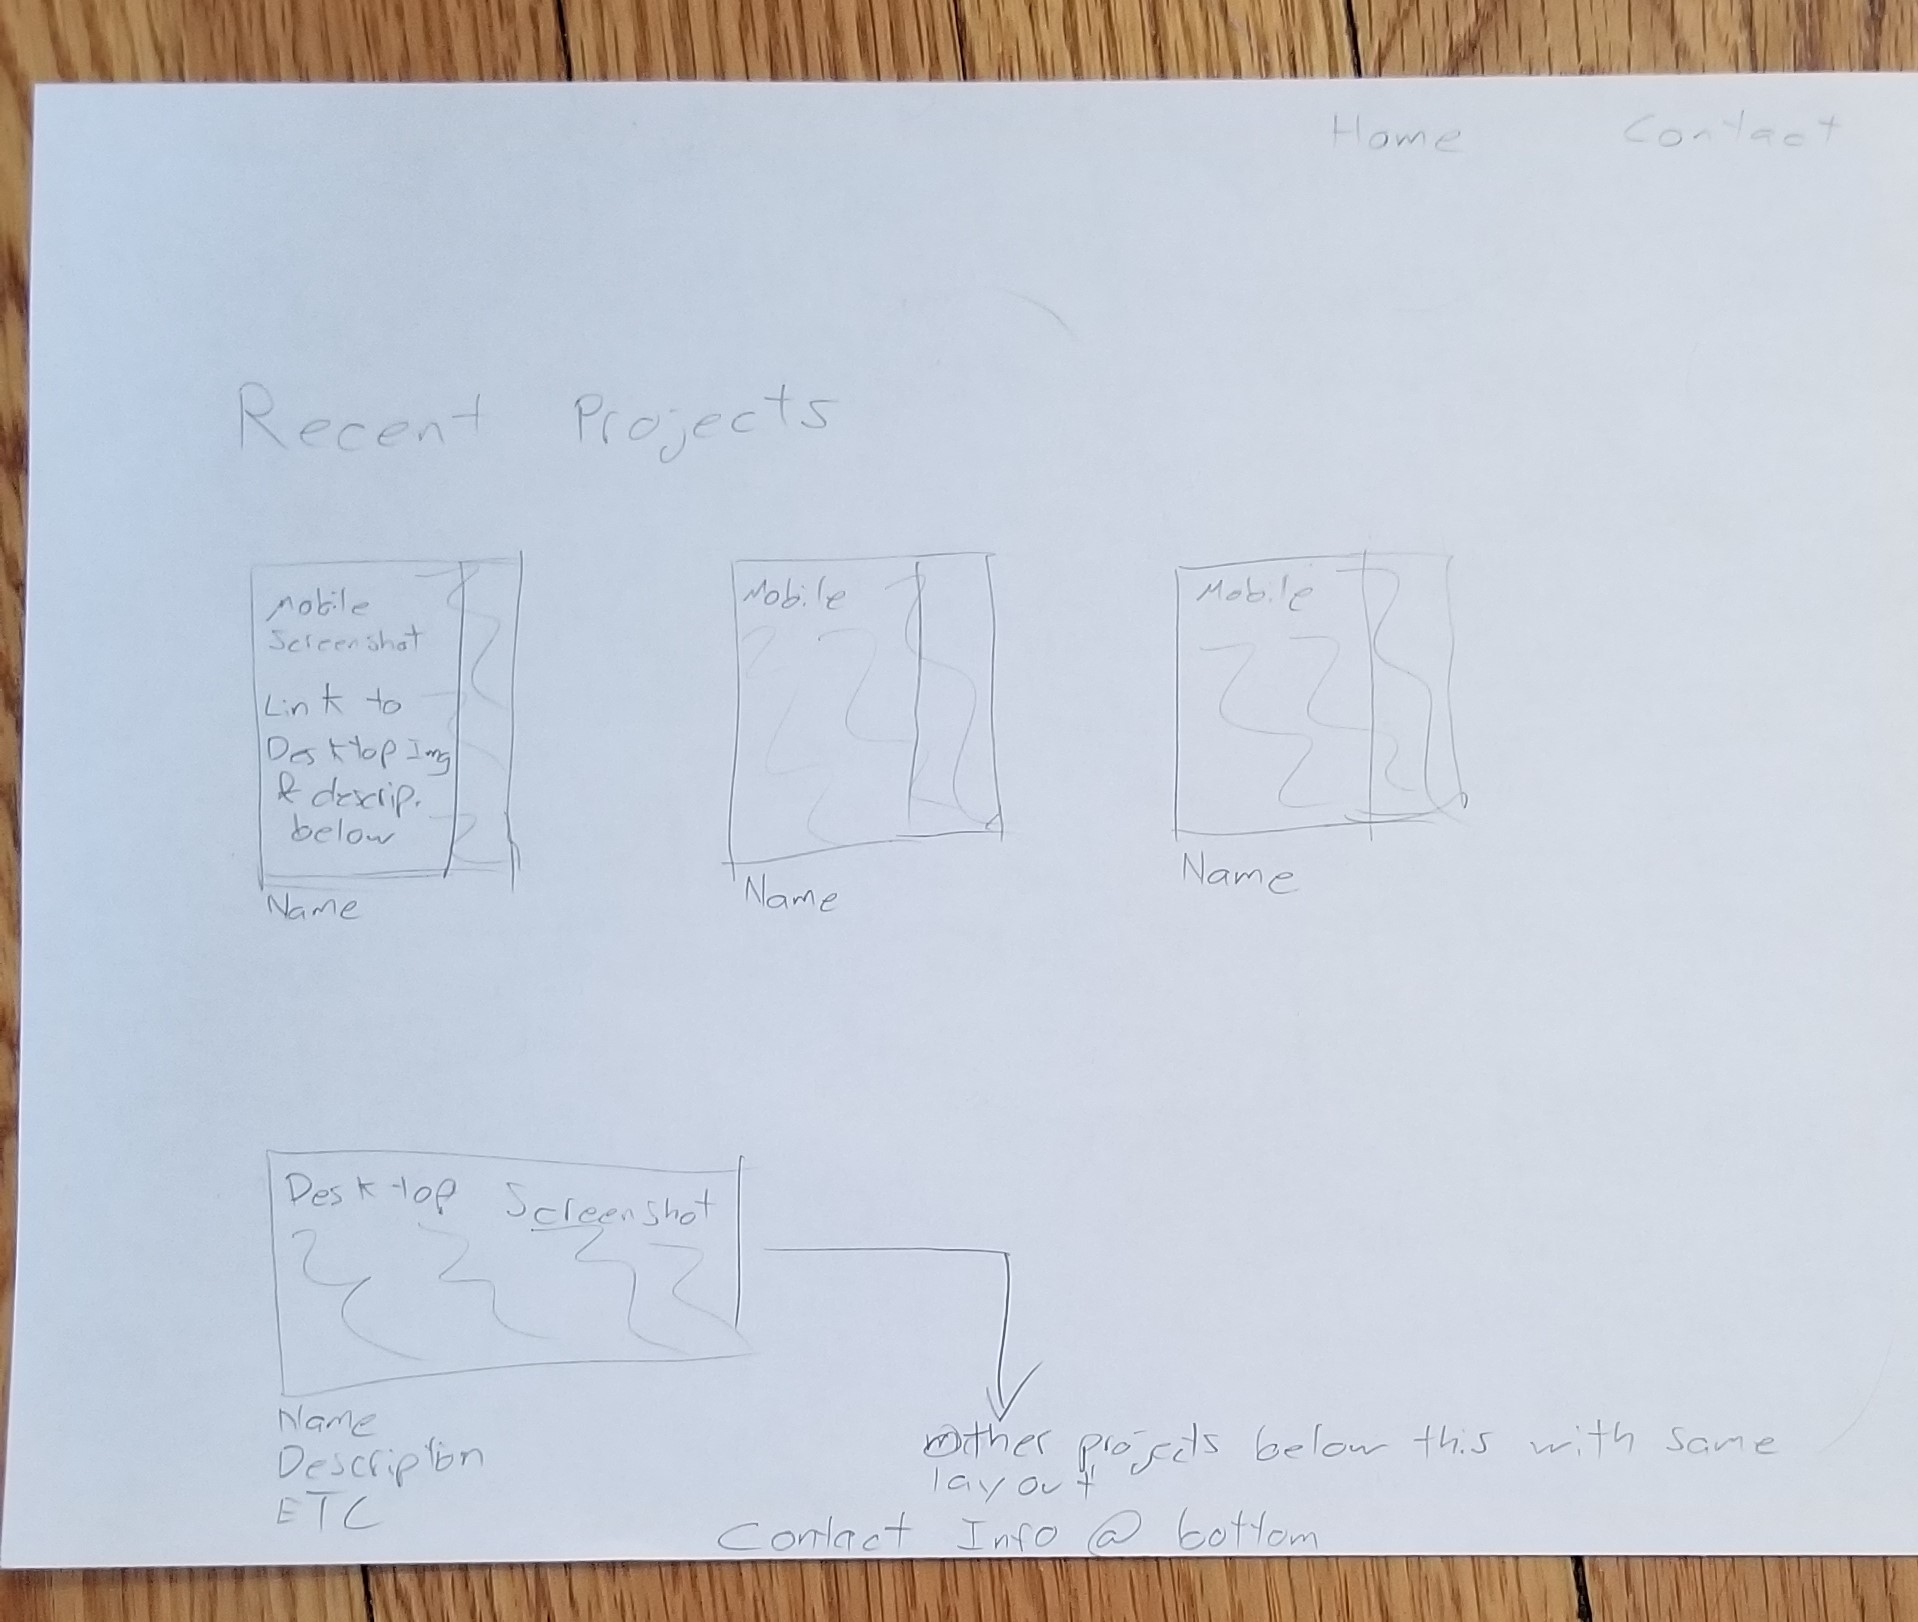 Home Contact
Recent Projects
Mobile
Screenshot
Link to
Desktop Img
& descrip.
below
Name
Mobile
Name
Mobile
Name
Desktop Screenshot
Name
Description
ETC
Other projects below this with same
layout
Contact Info @ bottom